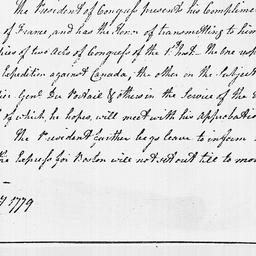 The President of Congress presents his Complimen
of France, and has the Honor of transmitting to him
pies of two Acts of Congress of the 1st Inst. The one resp
Expedition against Canada, the other on the Subject
Gen. Du Portail & others in the Service of the
of which, he hopes, will meet with his Approbatio
The President further begs leave to inform
the Express for Boston will not set out till to mor
1779